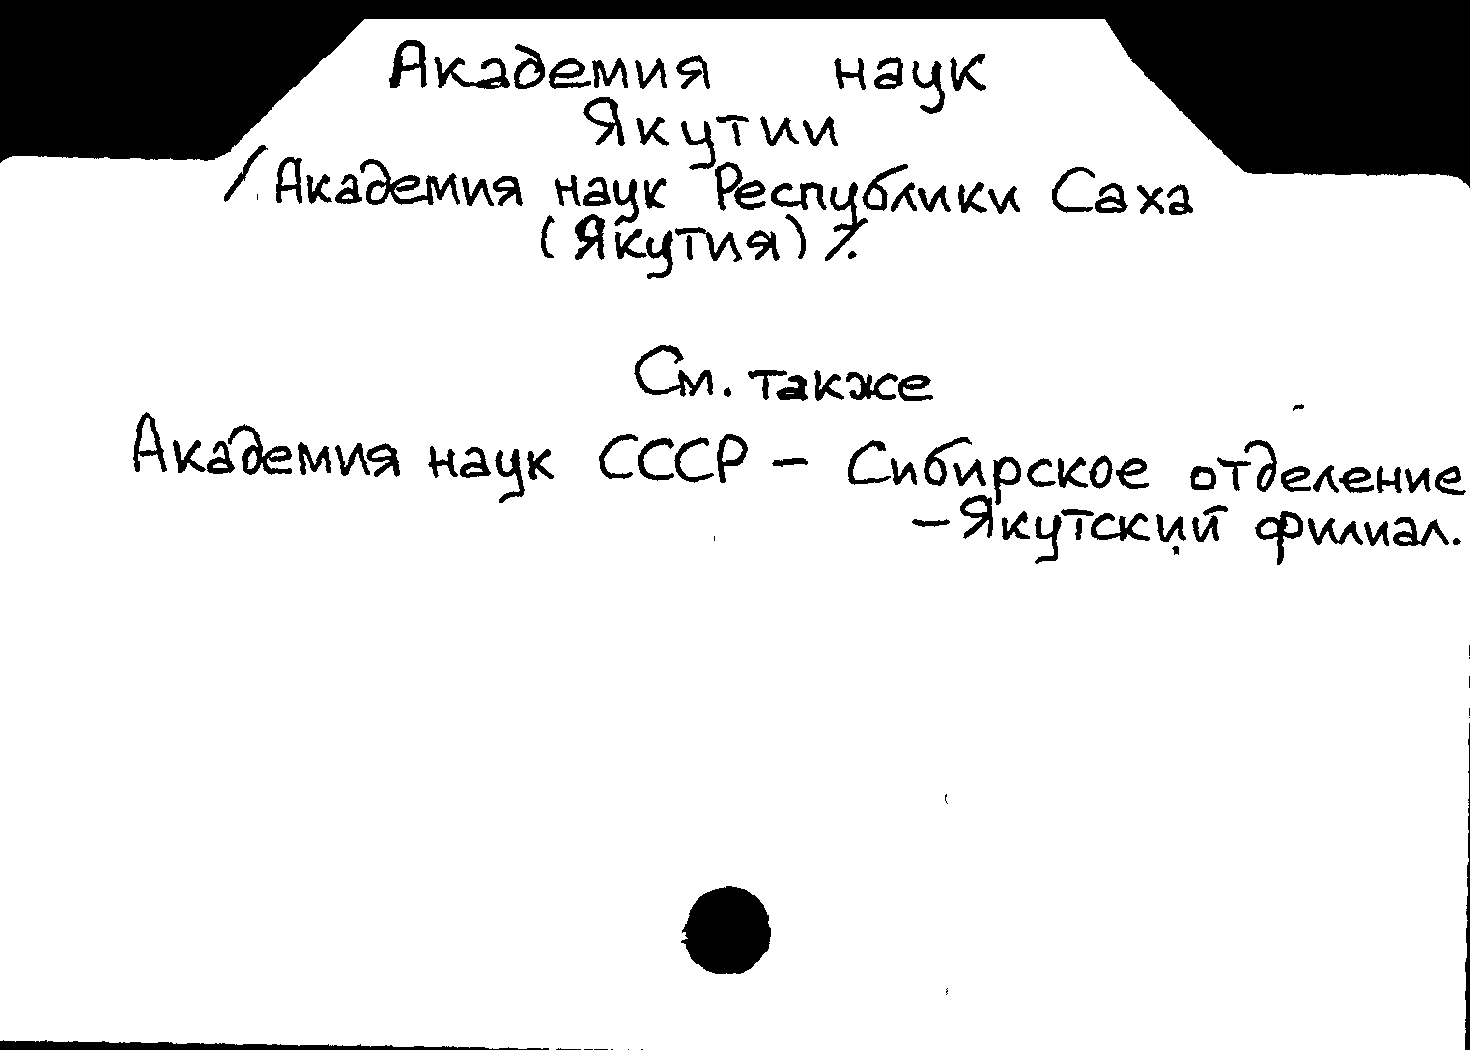 Академия наук
Якутии
/ Академия наук Республики Саха
(Якутия) /.
См. также
Академия наук СССР – Сибирское отделение
– Якутский филиал.